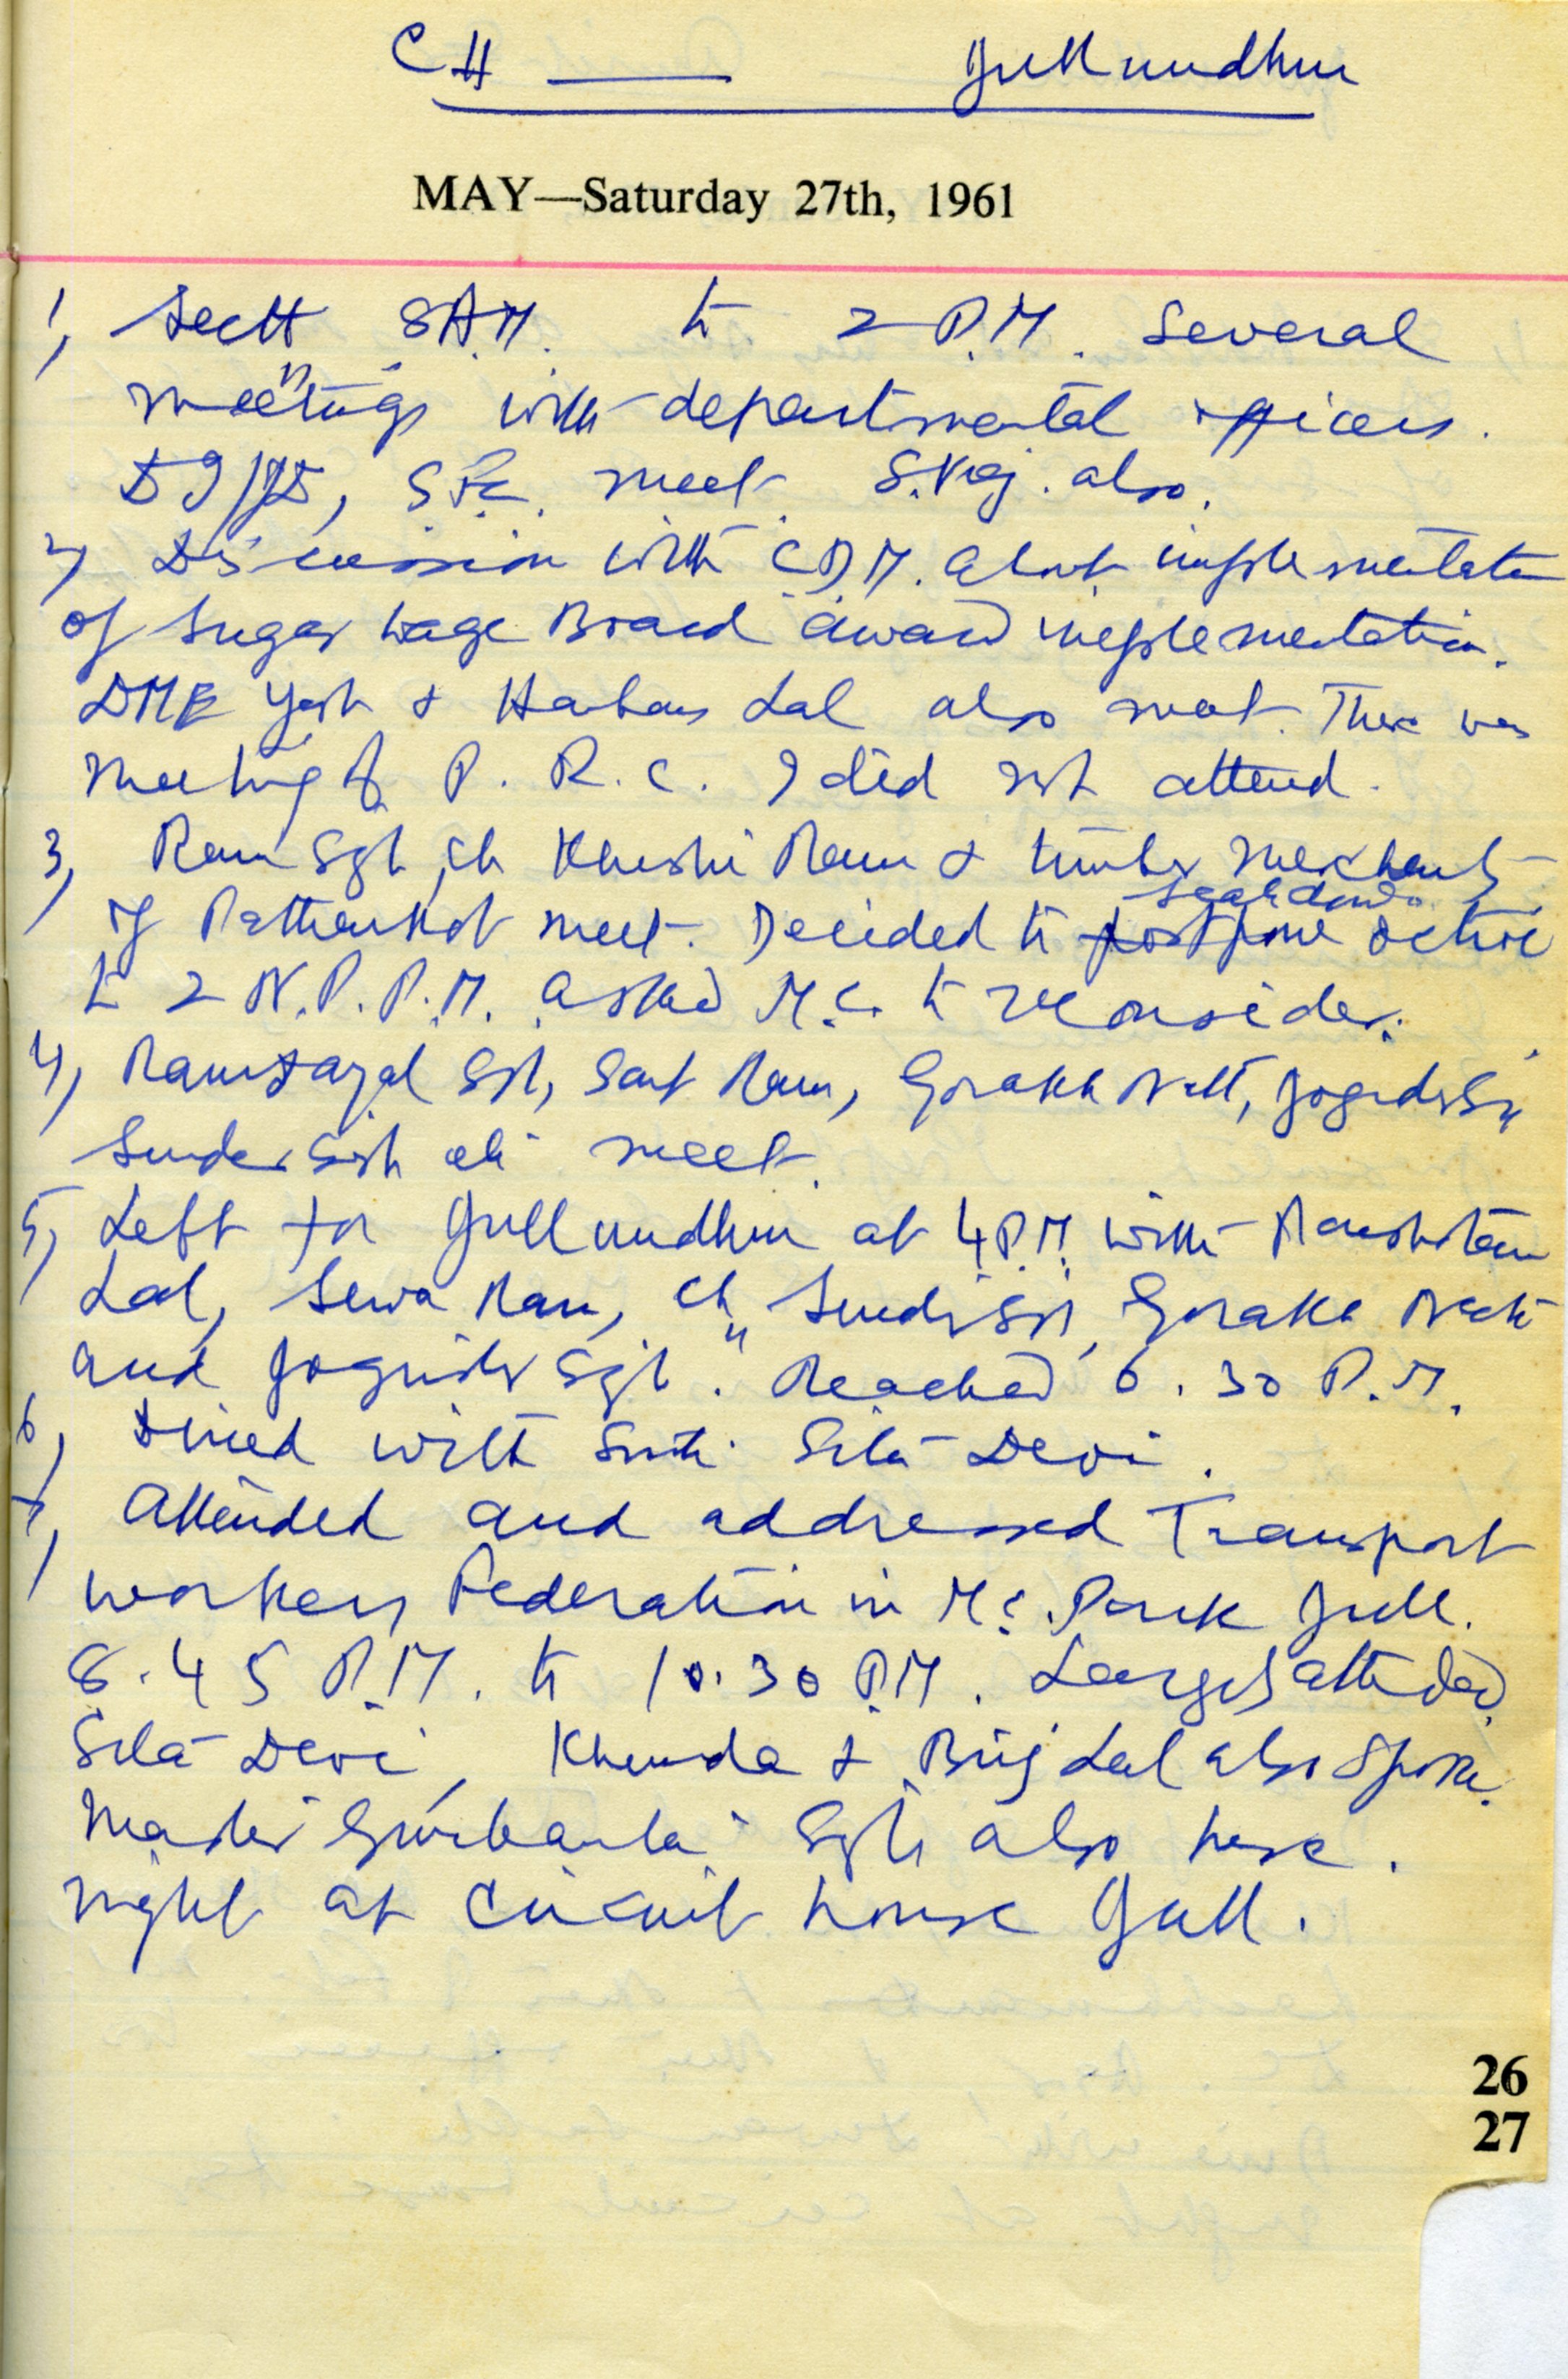 CH — Jullundhur
MAY—Saturday 27th, 1961
1, Sectt 8 A.M. to 2 P.M. Several
meetings with departmental officers.
meet. also.
2, Discussion with C.D.M. about implementation
of Sugar Wage Board award implementation.
Yash & Harbans Lal also meet. There was
meeting of P. R. C. I did not attend.
3, Ram Sgh, Ch Khushi Ram & timber merchants
of Pathankot meet. Decided to scale down action
to 2 N.P.P.M. asked M.C. to reconsider.
4, Ramdayal Sgh, Sant Ram, Gorakh Nath, Joginder Sgh
Sunder Sigh etc meet.
5, Left for Jullundhur at 4 P.M. with
Lal, Sewa Ram, Ch Sunder Sgh, Gorakh Nath
and Joginder Sgh. Reached 6.30 P.M.
6, Dined with Smt. Sita Devi.
7, Attended and addressed Transport
workers Federation in M.C. Park Jull.
8.45 P.M. to 10.30 P.M. Largely attended.
Sita Devi, & Brij Lal also spoke.
Master Gurbanta Sgh also here.
Night at Circuit house Jull.
26
27